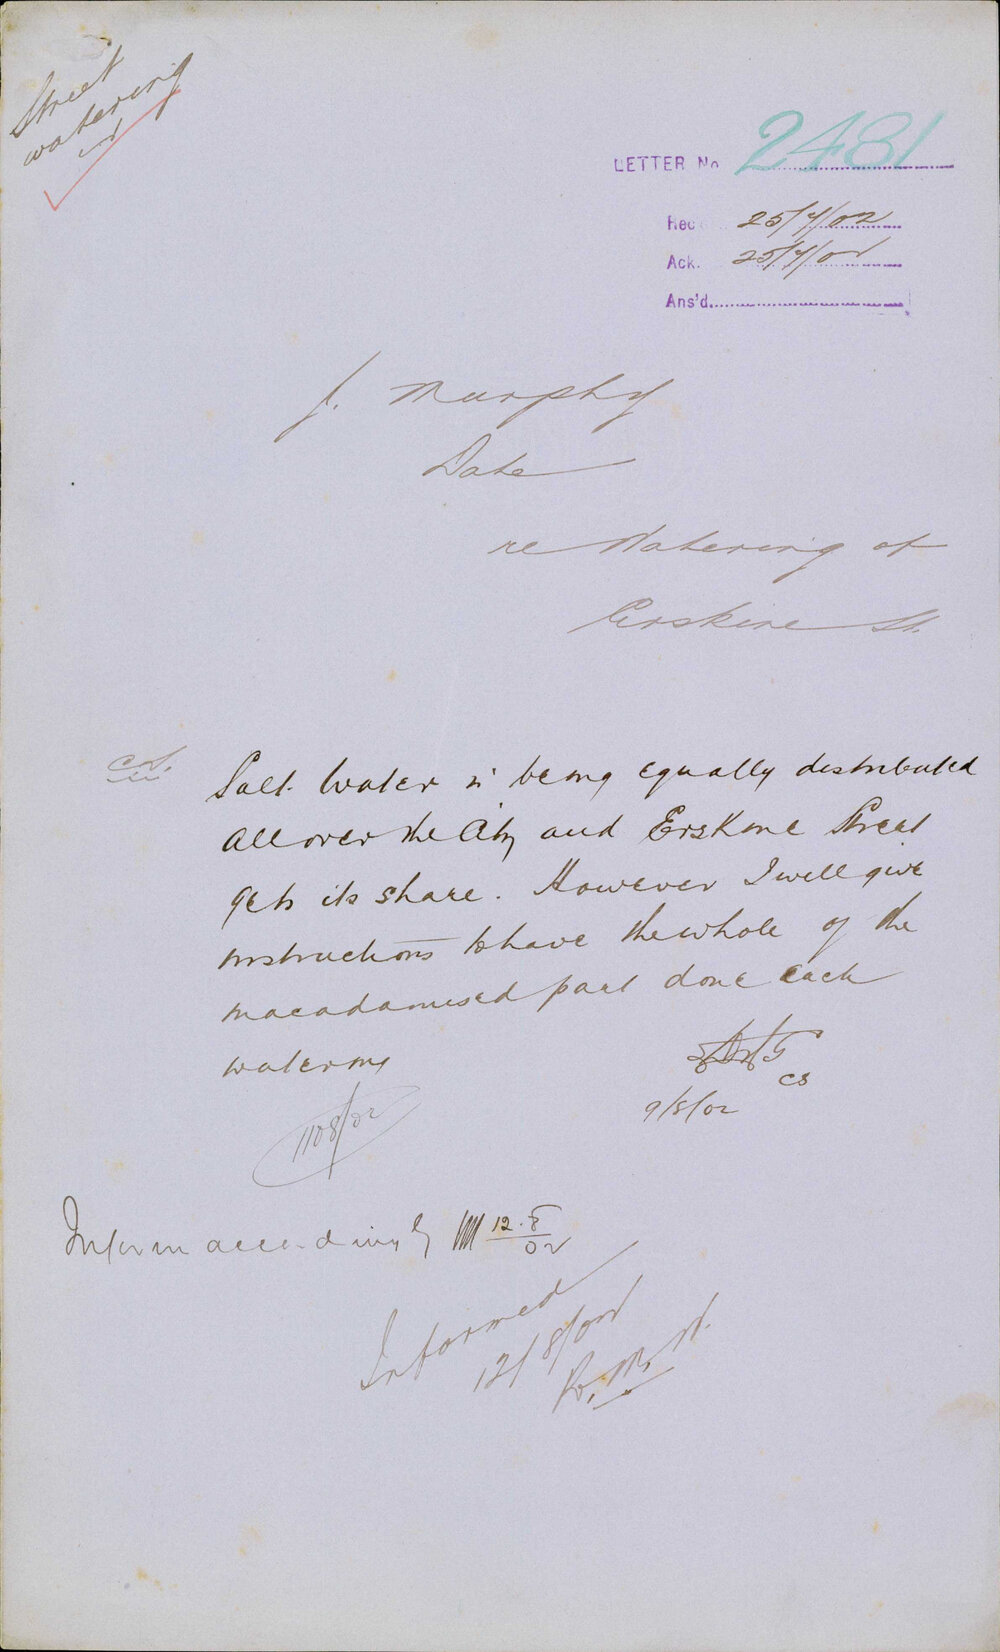 Street
watering
LETTER No 2481
Rec 25/7/02
Ack. 25/7/02
Ans'd.
J. Murphy
Date
re Watering of
Erskine St.
C.S.
Salt Water is being equally distributed
all over the City and Erskine Street
gets its share. However I will give
instructions to have the whole of the
macadamised part done each
watering
CS
9/8/02
1108/02
Inform accordingly 12.8
02
Informed
12/8/02